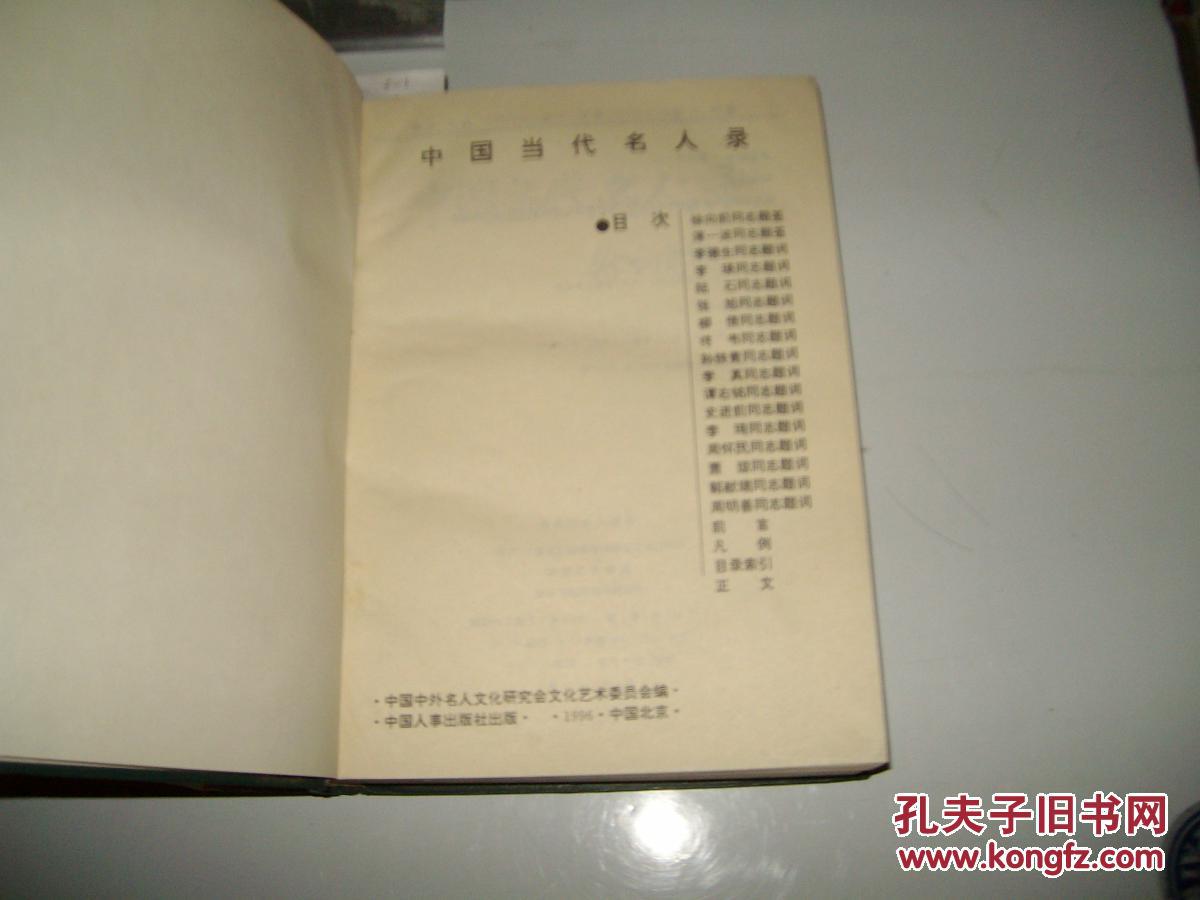 中国当代名人录
●目 次
徐向前同志题签
薄一波同志题签
李德生同志题词
李 同志题词
陆 石同志题词
张 旭同志题词
柳 倩同志题词
佟 韦同志题词
孙轶青同志题词
李 真同志题词
谭右铭同志题词
史进前同志题词
李 同志题词
周怀民同志题词
萧 琼同志题词
郭献瑞同志题词
周明善同志题词
前 言
凡 例
目录索引
正 文
·中国中外名人文化研究会文化艺术委员会编·
·中国人事出版社出版· ·1996·中国北京·
孔夫子旧书网
www.kongfz.com